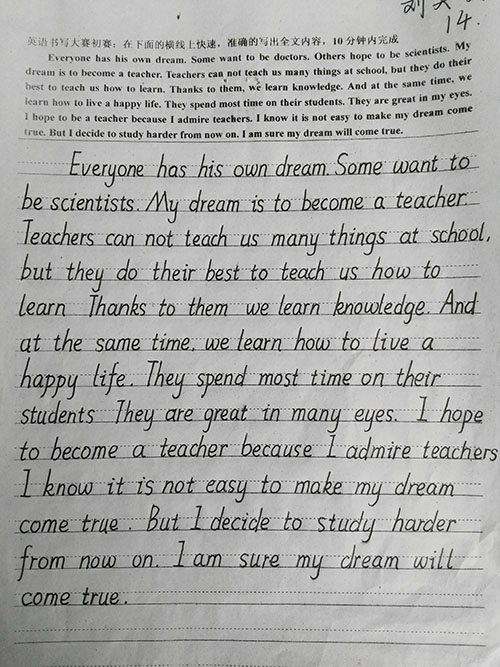 14.
英语书写大赛初赛：在下面的横线上快速，准确的写出全文内容，10分钟内完成
Everyone has his own dream. Some want to be doctors. Others hope to be scientists. My
dream is to become a teacher. Teachers can not teach us many things at school, but they do their
best to teach us how to learn. Thanks to them, we learn knowledge. And at the same time, we
learn how to live a happy life. They spend most time on their students. They are great in my eyes.
I hope to be a teacher because I admire teachers. I know it is not easy to make my dream come
true. But I decide to study harder from now on. I am sure my dream will come true.
Everyone has his own dream. Some want to
be scientists. My dream is to become a teacher.
Teachers can not teach us many things at school,
but they do their best to teach us how to
learn Thanks to them we learn knowledge. And
at the same time, we learn how to live a
happy life. They spend most time on their
students They are great in many eyes. I hope
to become a teacher because I admire teachers
I know it is not easy to make my dream
come true. But I decide to study harder
from now on. I am sure my dream will
come true.